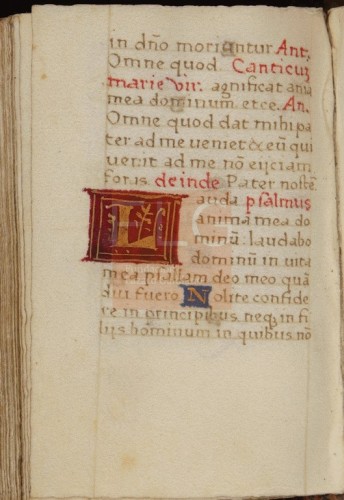 in dño moriantur Ant.
Omne quod Canticuʒ
marie vir. agnificat aniā
mea dominum etce. An.
Omne quod dat mihi pa
ter ad me veniet & eū qui
uenit ad me nō eijciam
foras deinde Pater nostē.
Lauda psalmus
anima mea do
minū: laudabo
dominū in uita
mea psallam deo meo quā
diu fuero Nolite confide
re in principibus neqʒ in fi
lijs hominum in quibus nō